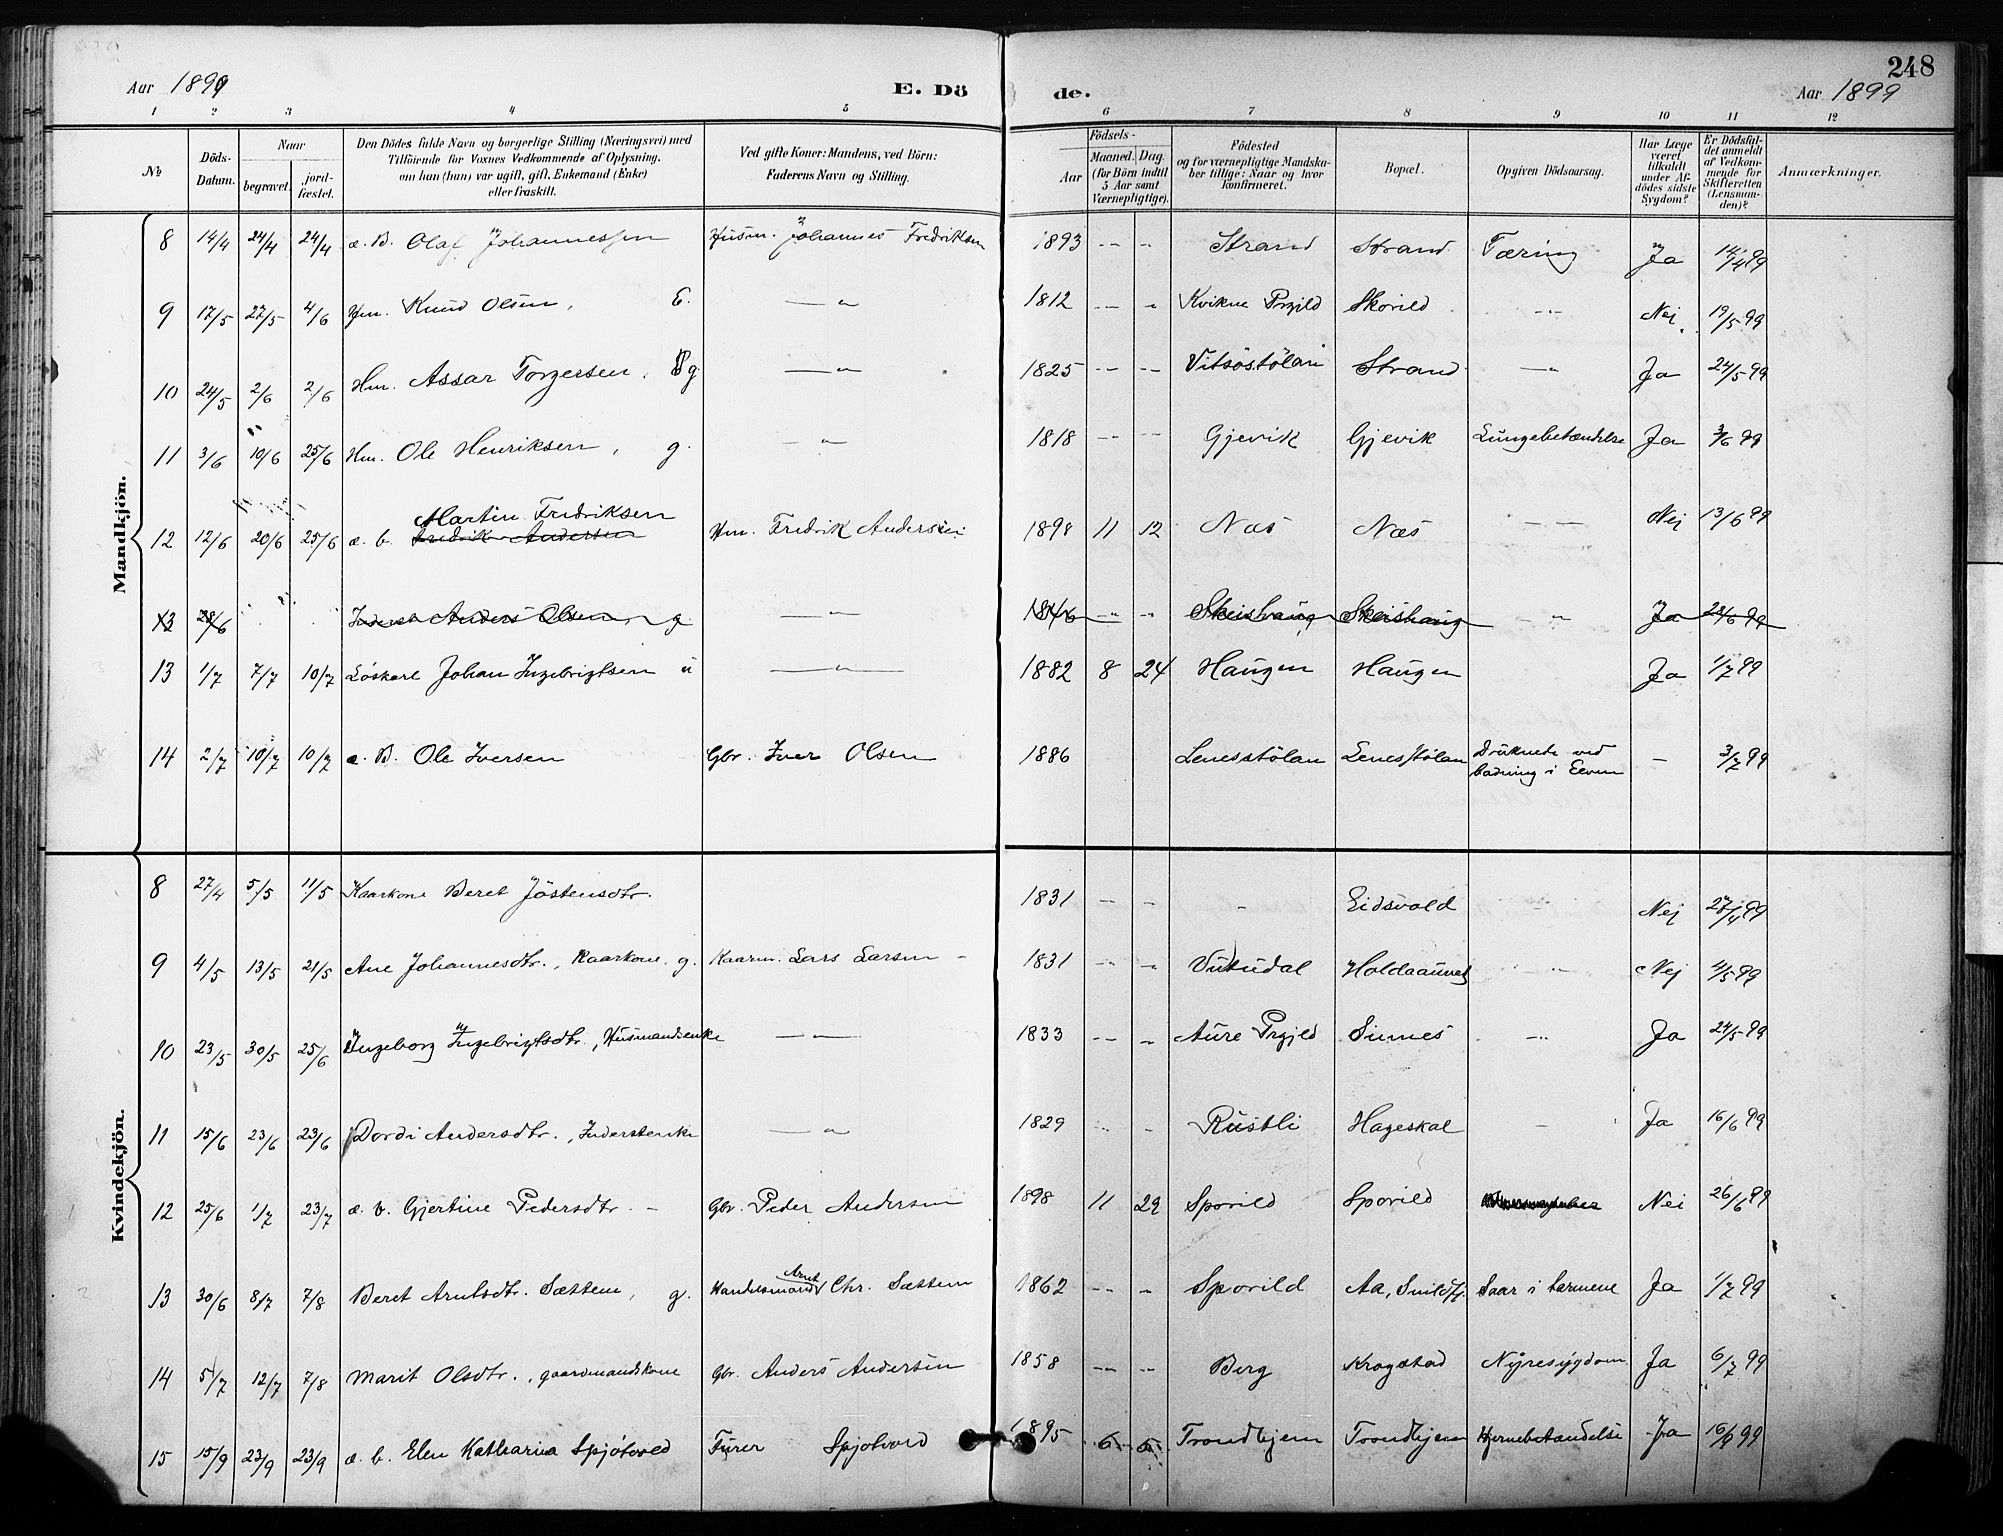 248
Aar 1899 E. Dö de. Aar 1899
1 2 3 4 5 6 7 8 9 10 11 12
№ Döds-Datum. Naar begravet. jord-fæstet. Den Dödes fulde Navn og borgerlige Stilling (Næringsvei) med Tilföiende for Voxnes Vedkommende af Oplysning, om han (hun) var ugift, gift, Enkemand (Enke) eller fraskilt. Ved gifte Koner: Mandens, ved Börn: Faderens Navn og Stilling. Födsels- Aar Maaned. Dag. (for Börn indtil 5 Aar samt Værnepligtige). Födested og for værnepligtige Mandska-ber tillige: Naar og hvor konfirmeret. Bopæl. Opgiven Dödsaarsag. Har Læge været tilkaldt under Af-dödes sidste Sygdom? Er Dödsfal-det anmeldt af Vedkom-mende for Skifteretten (Lensman-den)? Anmærkninger.
Mandkjön.
8 14/4 24/4 24/4 æ. B. Olaf Johannessen Husm. Johannes Fredriksen 1893 -- - Strand Strand Tæring Ja 14/4 99
9 17/5 27/5 4/6 Hm. Knud Olsen, E. — " 1812 -- " Kvikne Prgjld Skorild -"- Nej 19/5 99
10 24/5 2/6 2/6 Hm. Assar Torgersen, g. — " 1825 -- - Vitsöstölan Strand — " Ja 24/5 99
11 3/6 10/6 25/6 Hm. Ole Henriksen, g. — " 1818 -- -- Gjevik Gjevik Lungebetændelse Ja 3/6 99
12 12/6 20/6 25/6 æ. b. Martin Fredriksen Fredrik Andersen Hm. Fredrik Andersen 1898 11 12 Næs Næs — — Nej 13/6 99
13 28/6 Inderst Anders Olsen, g. — " 1846 -- " Skeishaug Skeishaug - " Ja 28/6 99
13 1/7 7/7 10/7 Löskarl Johan Ingebrigtsen u — " — 1882 8 24 Haugen Haugen Ja 1/7 99
14 2/7 10/7 10/7 æ. B. Ole Iversen Gbr. Iver Olsen 1886 Lenesstölan Lenesstölan Druknede ved badning i Elven - 3/7 99
Kvindekjön.
8 27/4 5/5 11/5 Kaarkone Beret Jöstensdtr. 1831 -- - - Eidsvold - Nej 27/4 99
9 4/5 13/5 21/5 Ane Johannesdtr., Kaarkone, g. Kaarm. Lars Larsen - 1831 -- - Vutudal Holdaaunet - " Nej 4/5 99
10 23/5 30/5 25/6 Ingeborg Ingebrigtsdtr., Husmandsenke — " 1833 -- - Aure Prgjld Sinnes -"- Ja 24/5 99
11 15/6 23/6 23/6 Dordi Andersdtr., Inderstenke — " 1829 -- - Rustli Hageskal - Ja 16/6 99
12 25/6 1/7 23/7 æ. b. Gjertine Pedersdtr. - Gbr. Peder Andersen 1898 11 29 Sporild Sporild Nei 26/6 99
13 30/6 8/7 7/8 Beret Arntsdtr. Sættem, g. Handelsmand Arnt Chr. Sættem 1862 -- - Sporild Aa, Saar i tarmene Ja 1/7 99
14 5/7 12/7 7/8 Marit Olsdtr., gaardmandskone Gbr. Anders Andersen 1858 -- -- Berg Krogstad Nyresygdom Ja 6/7 99
15 15/9 23/9 23/9 æ. b. Elen Katharina Spjötvold Furer Spjotvold 1895 6 5 Trondhjem Trondhjem Hjernebetændelse Ja 16/9 99